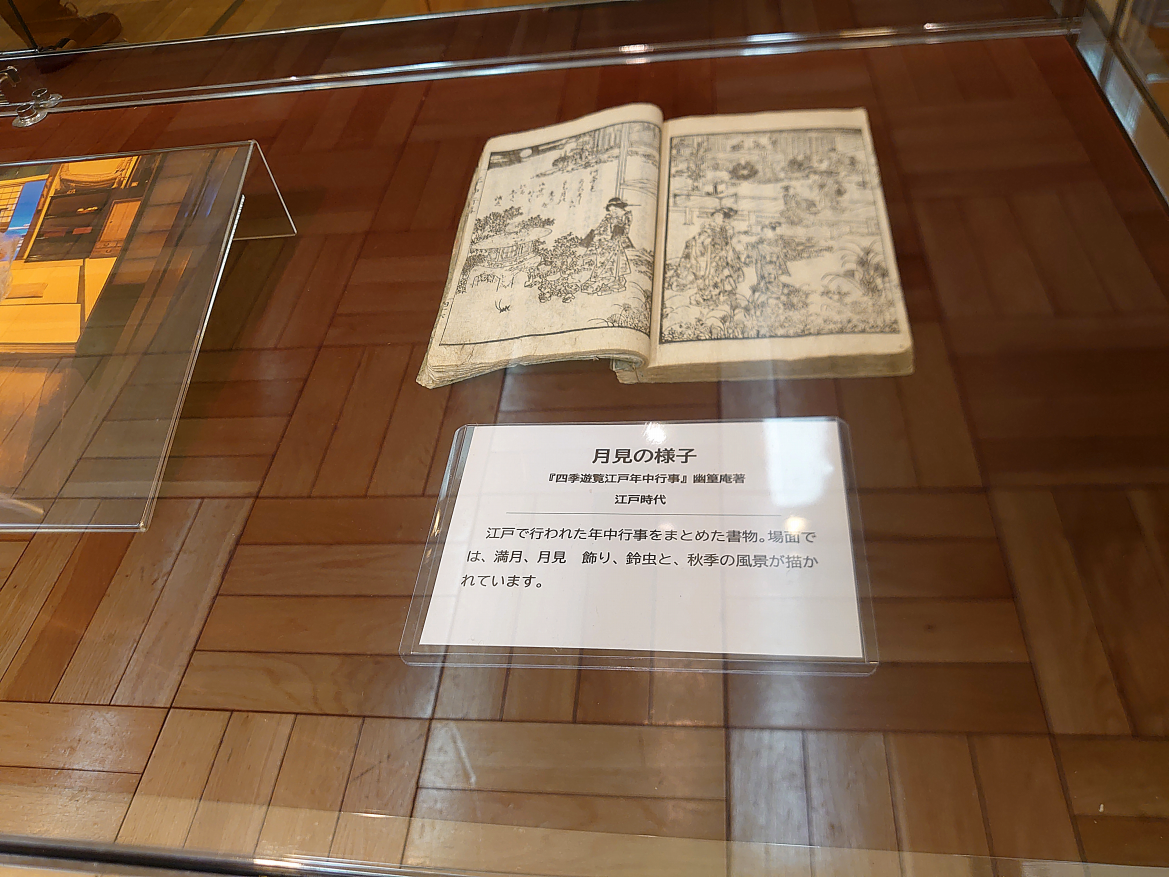 月見の様子
『四季遊覧江戸年中行事』幽篁庵著
江戸時代
江戸で行われた年中行事をまとめた書物。場面で
は、満月、月見　飾り、鈴虫と、秋季の風景が描か
れています。